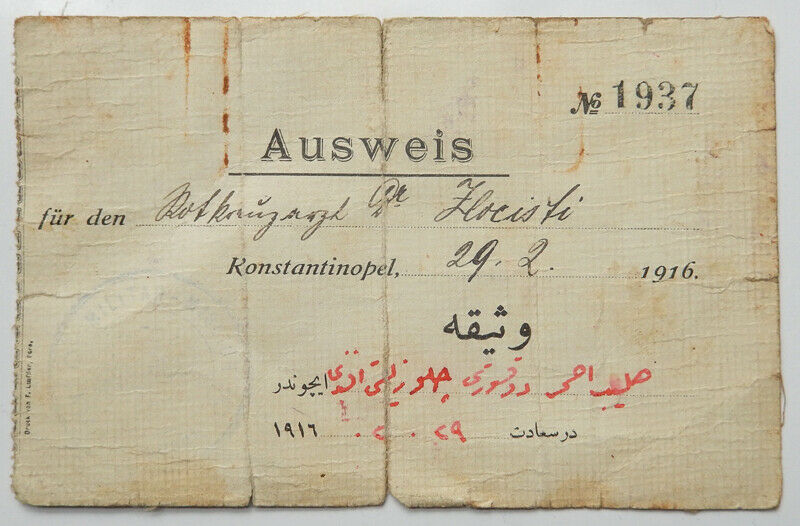 № 1937
Ausweis
für den Rotkreuzarzt Dr Zlocisti
Konstantinopel, 29. 2. 1916.
وثيقه
صليب احمر دوقتورى زلتى افندى ايچوندر
در سعادت ٢٩ ٠ ٢ ٠ ١٩١٦
Druck von F. Loeffler, Pera.